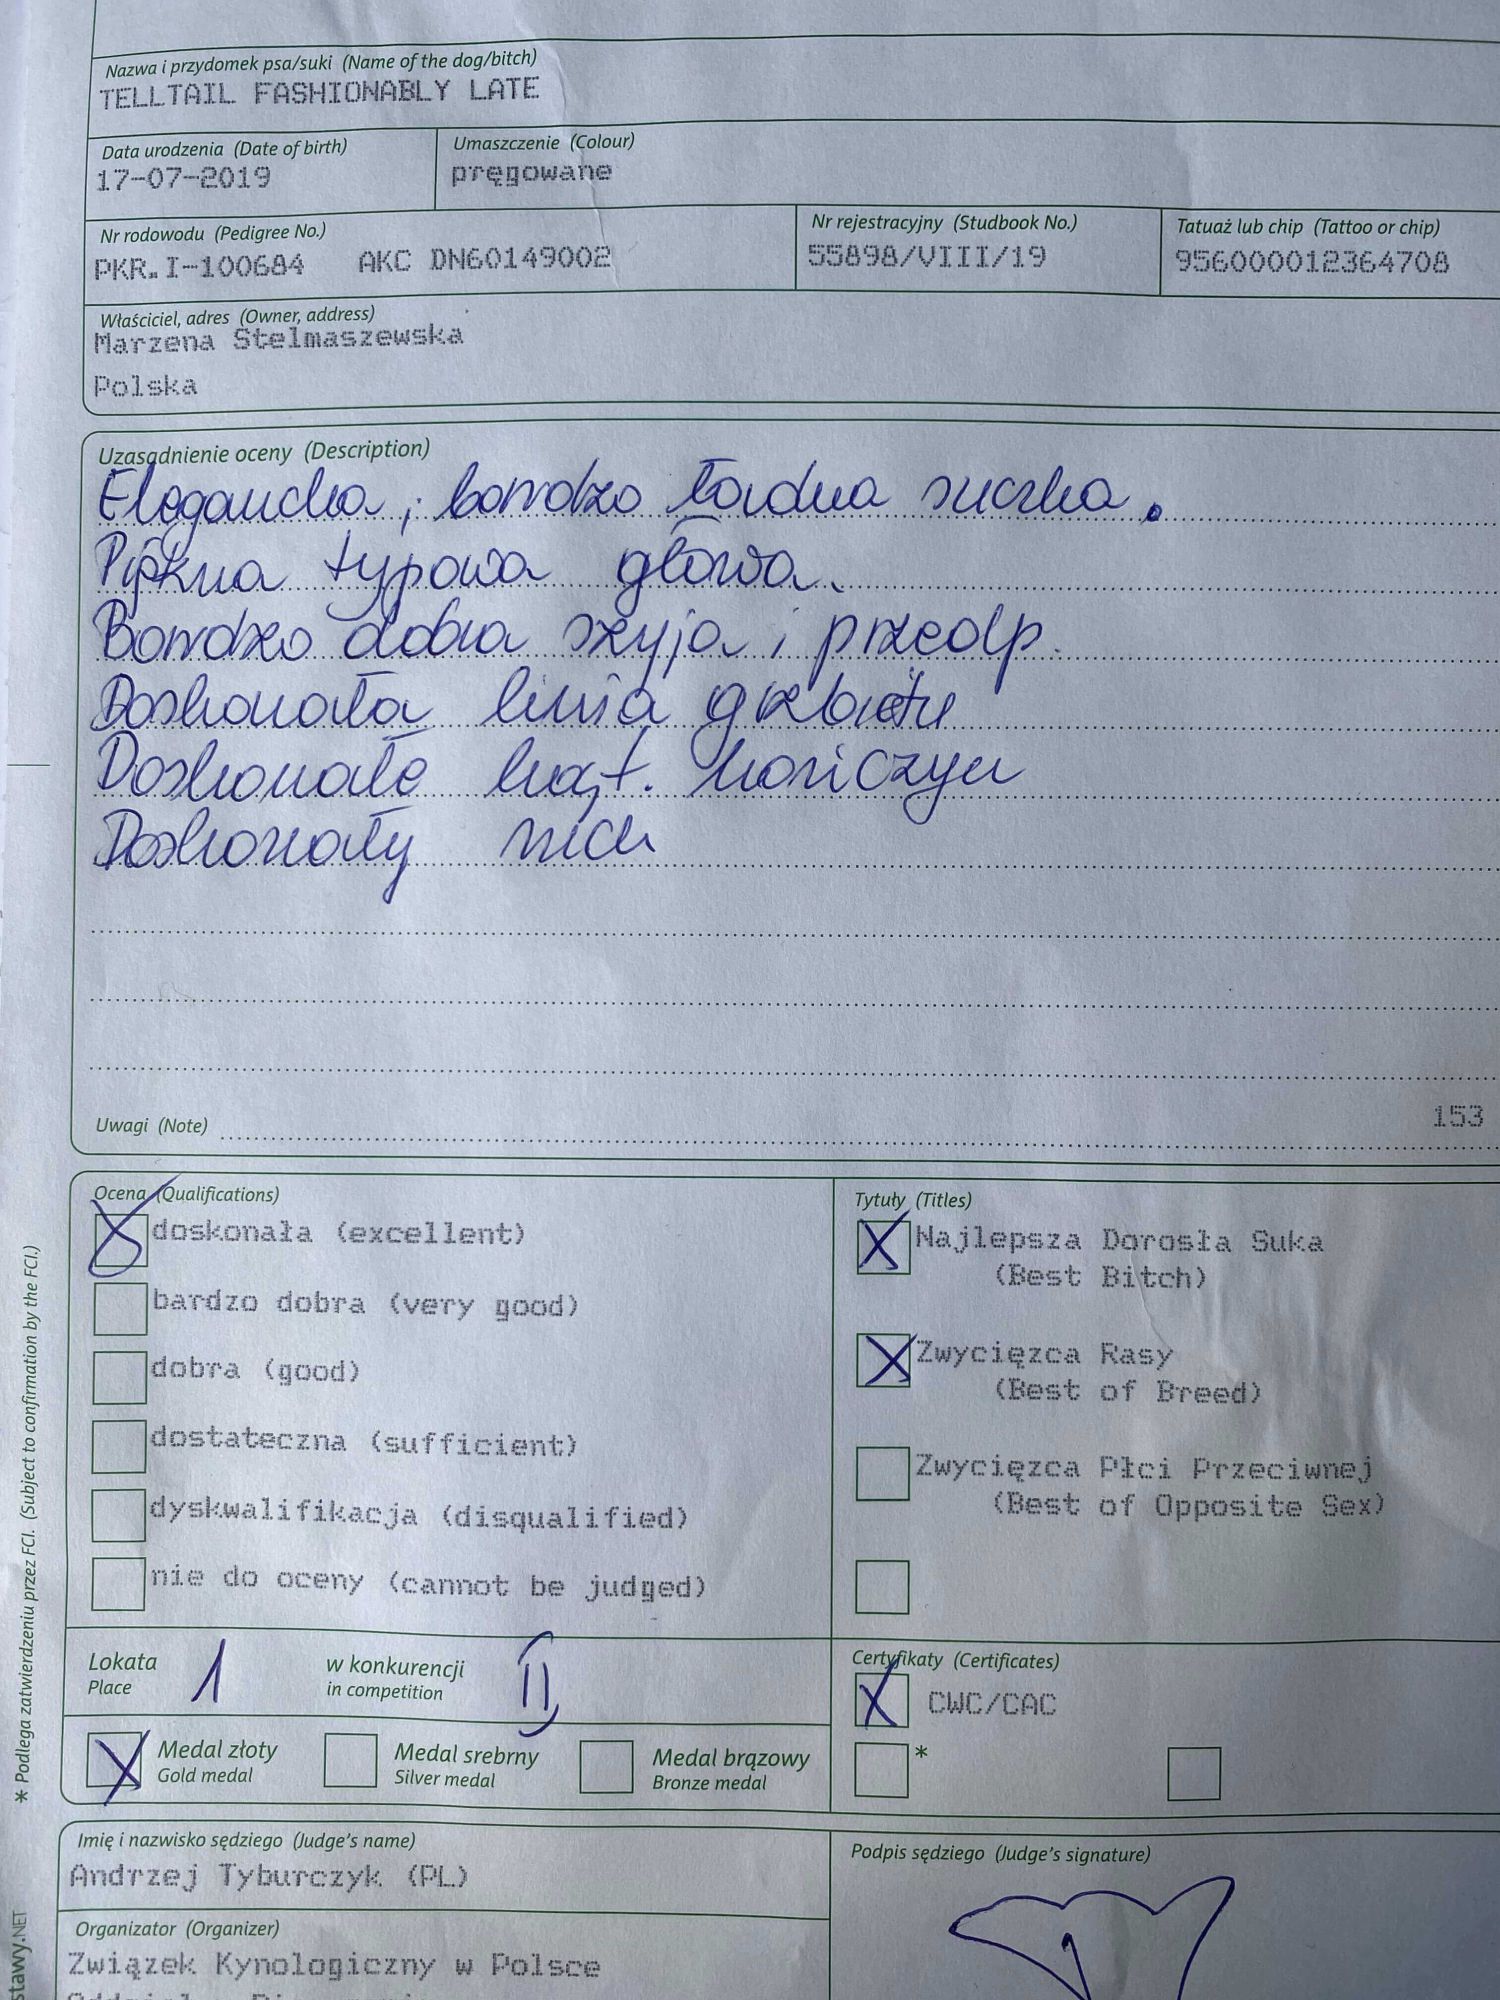 Nazwa i przydomek psa/suki (Name of the dog/bitch)
TELLTAIL FASHIONABLY LATE
Data urodzenia (Date of birth)
17-07-2019
Umaszczenie (Colour)
pręgowane
Nr rodowodu (Pedigree No.)
PKR.I-100684 AKC DN60149002
Nr rejestracyjny (Studbook No.)
55898/VIII/19
Tatuaż lub chip (Tattoo or chip)
956000012364708
Właściciel, adres (Owner, address)
Marzena Stelmaszewska
Polska
Uzasadnienie oceny (Description)
Elegancka, bardzo ładna suczka.
Piękna typowa głowa.
Bardzo dobra szyja i przedp.
Doskonała linia grzbietu
Doskonałe kąt. kończyn
Doskonały ruch
Uwagi (Note)
153
Ocena (Qualifications)
doskonała (excellent)
bardzo dobra (very good)
dobra (good)
dostateczna (sufficient)
dyskwalifikacja (disqualified)
nie do oceny (cannot be judged)
Tytuły (Titles)
Najlepsza Dorosła Suka
(Best Bitch)
Zwycięzca Rasy
(Best of Breed)
Zwycięzca Płci Przeciwnej
(Best of Opposite Sex)
Lokata 1 w konkurencji II
Place in competition
Medal złoty
Gold medal
Medal srebrny
Silver medal
Medal brązowy
Bronze medal
Certyfikaty (Certificates)
CWC/CAC
*
Imię i nazwisko sędziego (Judge's name)
Andrzej Tyburczyk (PL)
Podpis sędziego (Judge's signature)
Organizator (Organizer)
Związek Kynologiczny w Polsce
* Podlega zatwierdzeniu przez FCI. (Subject to confirmation by the FCI.)
stawy.NET